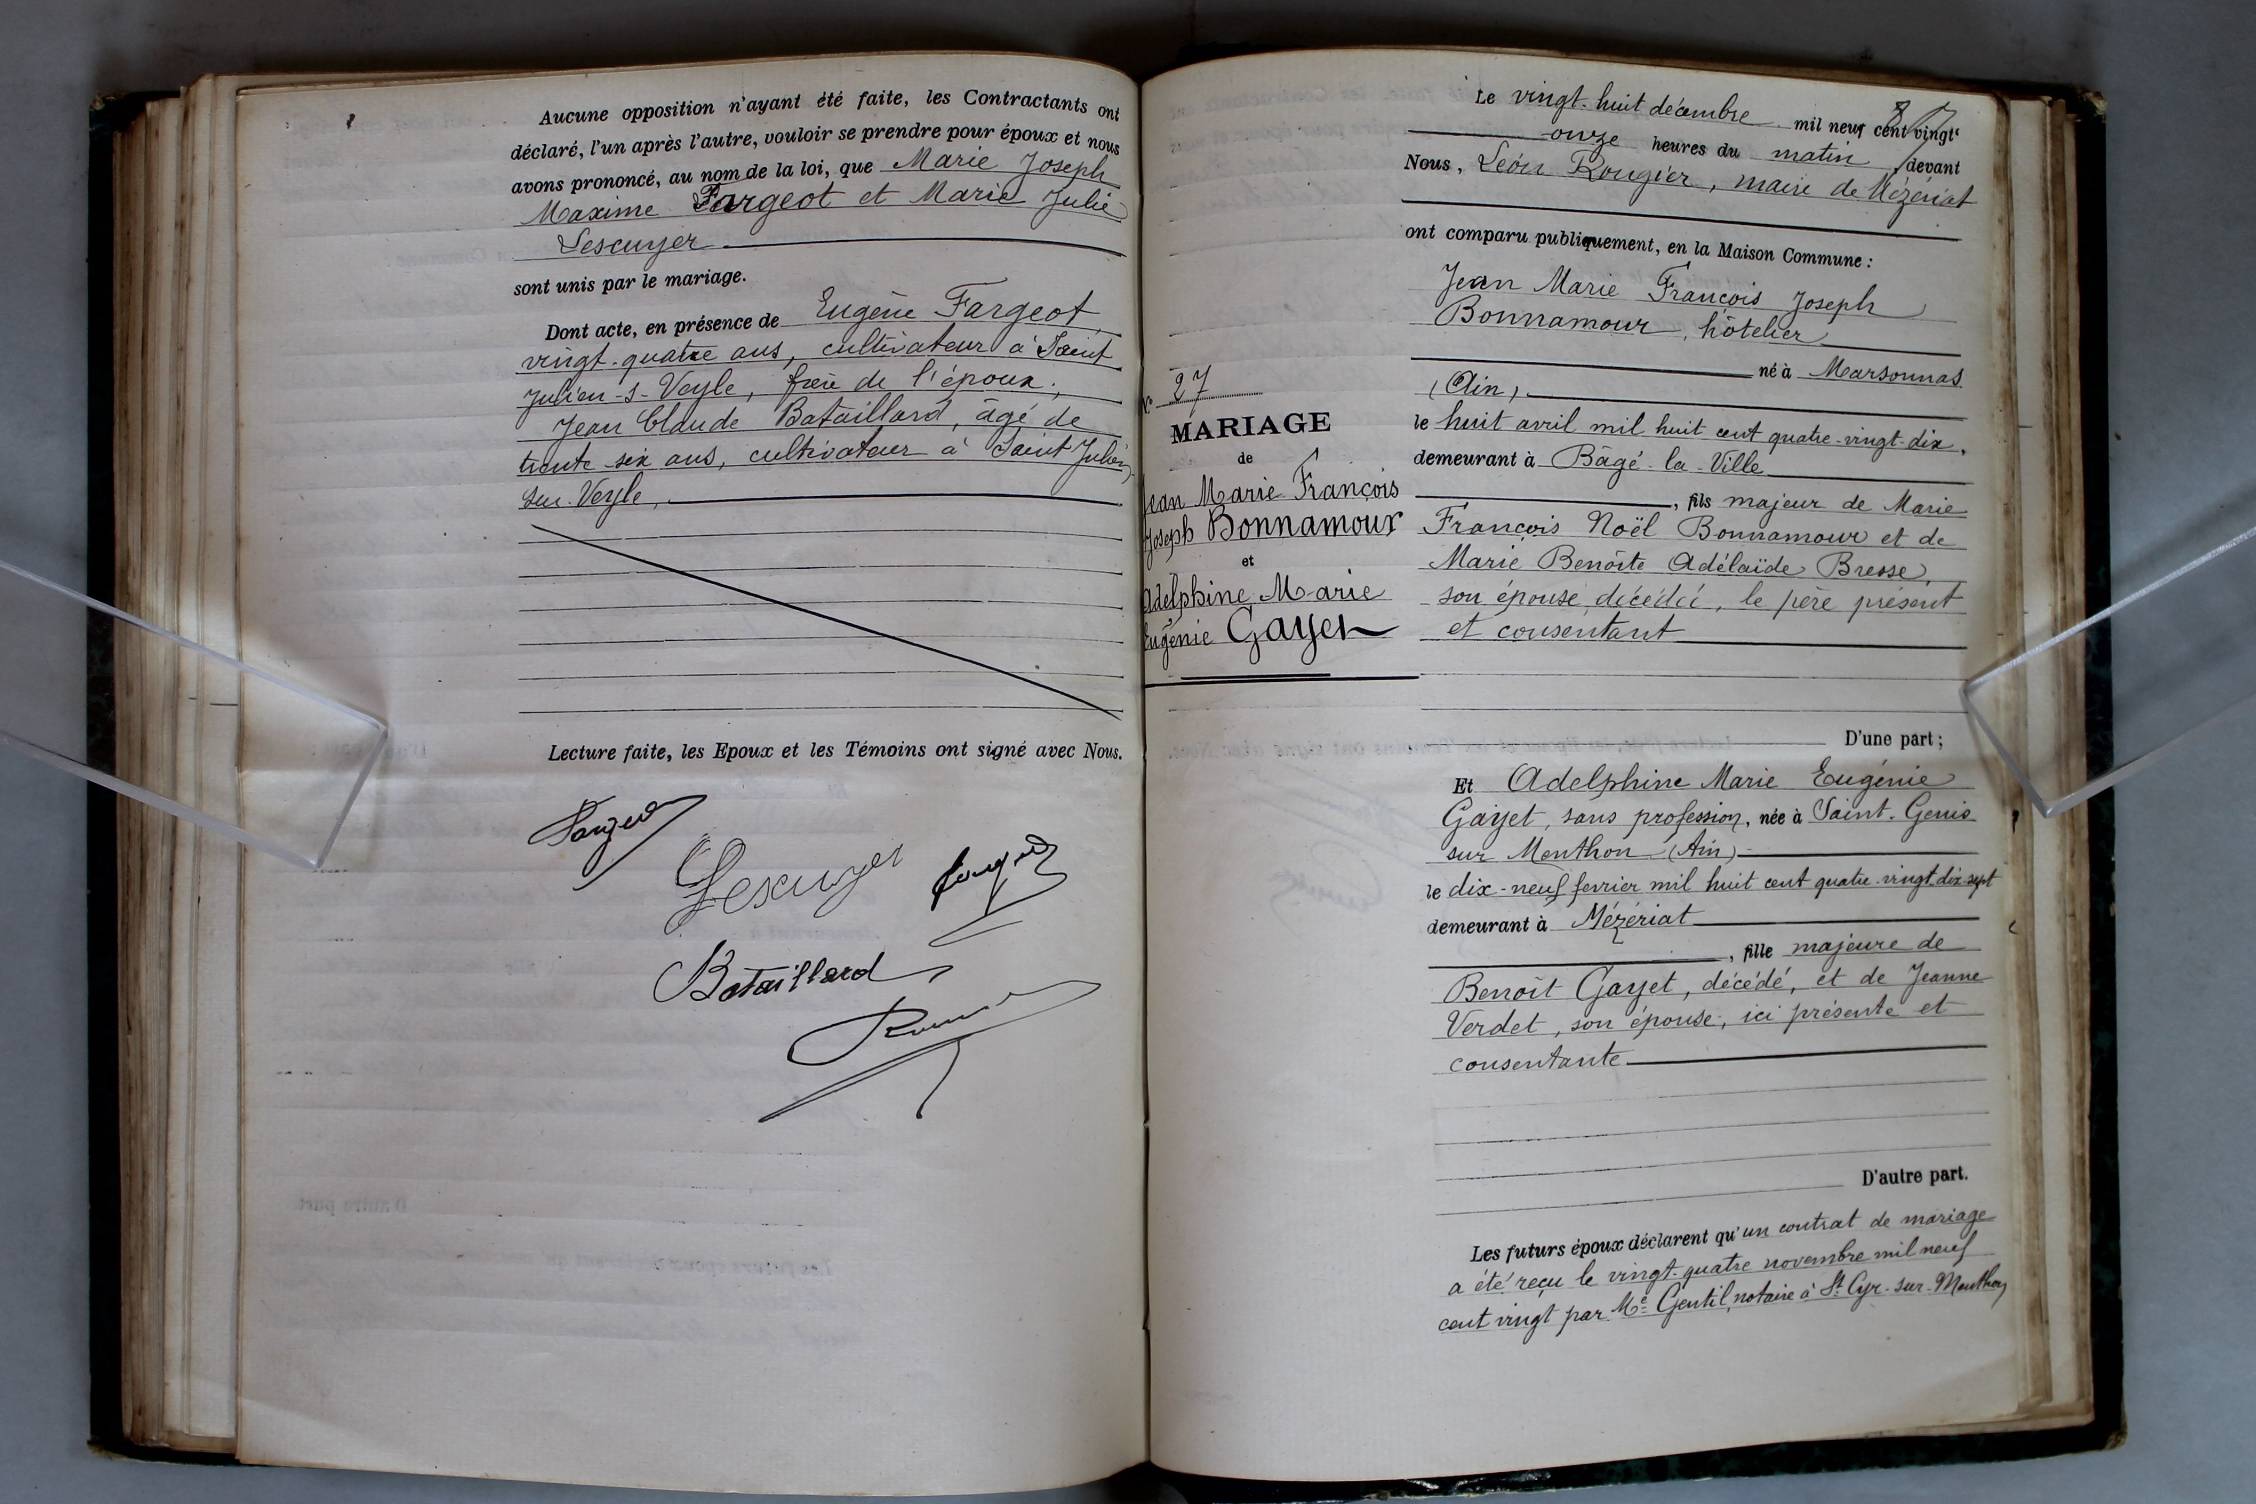 Aucune opposition n'ayant été faite, les Contractants ont
déclaré, l'un après l'autre, vouloir se prendre pour époux et nous
avons prononcé, au nom de la loi, que Marie Joseph
Maxime Fargeot et Marie Julie
Lescuyer
sont unis par le mariage.
Dont acte, en présence de Eugène Fargeot,
vingt-quatre ans, cultivateur à Saint
Julien-s-Veyle, frère de l'époux,
Jean Claude Bataillard, âgé de
trente-six ans, cultivateur à Saint Julien
sur-Veyle,
Lecture faite, les Epoux et les Témoins ont signé avec Nous.
Lescuyer
Bataillard
Le vingt-huit décembre mil neuf cent vingt
onze heures du matin, devant
Nous, Léon Rougier, maire de Mézériat
ont comparu publiquement, en la Maison Commune :
Jean Marie François Joseph
Bonnamour, hôtelier
né à Marsonnas
(Ain)
le huit avril mil huit cent quatre-vingt-dix,
demeurant à Bâgé-la-Ville
, fils majeur de Marie
François Noël Bonnamour et de
Marie Benoîte Adélaïde Bresse,
son épouse, décédée, le père présent
et consentant
D'une part ;
N° 27
MARIAGE
de
Jean Marie François
Joseph Bonnamour
et
Adelphine Marie
Eugénie Gayet
Et Adelphine Marie Eugénie
Gayet, sans profession, née à Saint-Genis
sur Menthon (Ain)
le dix-neuf fevrier mil huit cent quatre-vingt-dix-sept
demeurant à Mézériat
, fille majeure de
Benoît Gayet, décédé, et de Jeanne
Verdet, son épouse, ici présente et
consentante
D'autre part.
Les futurs époux déclarent qu'un contrat de mariage
a été reçu le vingt-quatre novembre mil neuf
cent vingt par Me Gentil, notaire à St Cyr-sur-Menthon